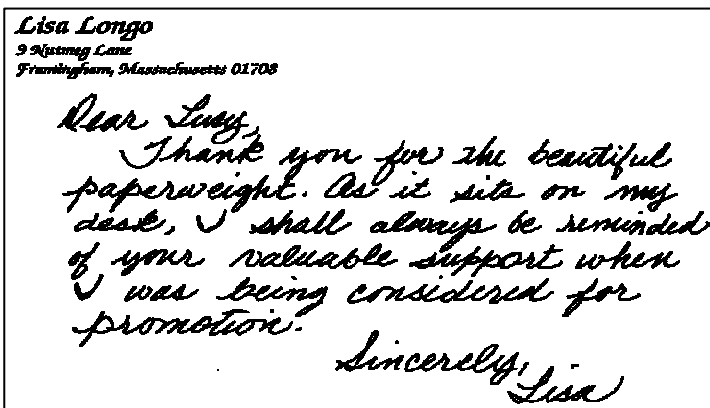 Lisa Longo
9 Nutmeg Lane
Framingham, Massachusetts 01708
Dear Lucy,
Thank you for the beautiful
paperweight. As it sits on my
desk, I shall always be reminded
of your valuable support when
I was being considered for
promotion.
Sincerely,
Lisa